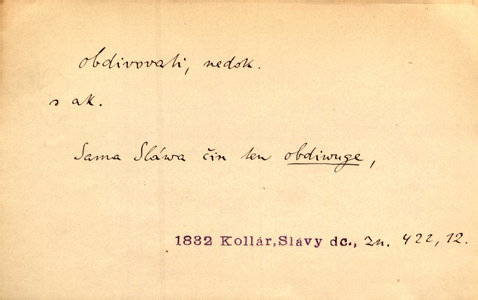 obdivovati, nedok.
s ak.
Sama Sláwa čin ten obdiwuge,
1832 Kollár, Slávy dc., zn. 422, 12.